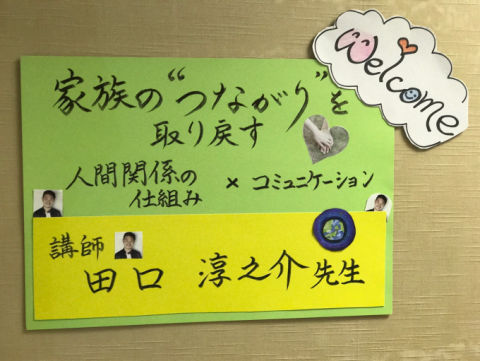 Welcome
家族の“つながり”を
取り戻す
人間関係の
仕組み
×
コミュニケーション
講師
田口 淳之介先生